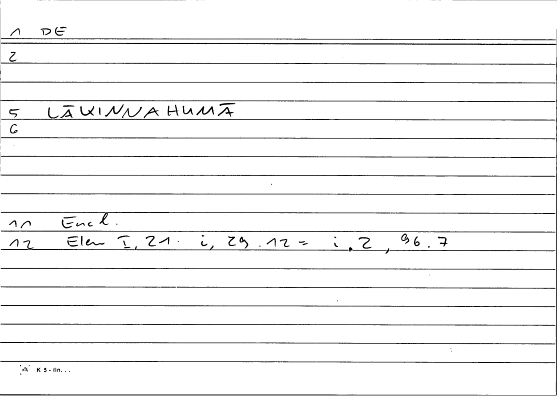 1 DE
2
5 LĀKINNAHUMĀ
6
11 Encl.
12 Elem I, 21. i, 29.12 = i.2, 96.7
K 5 - lln...